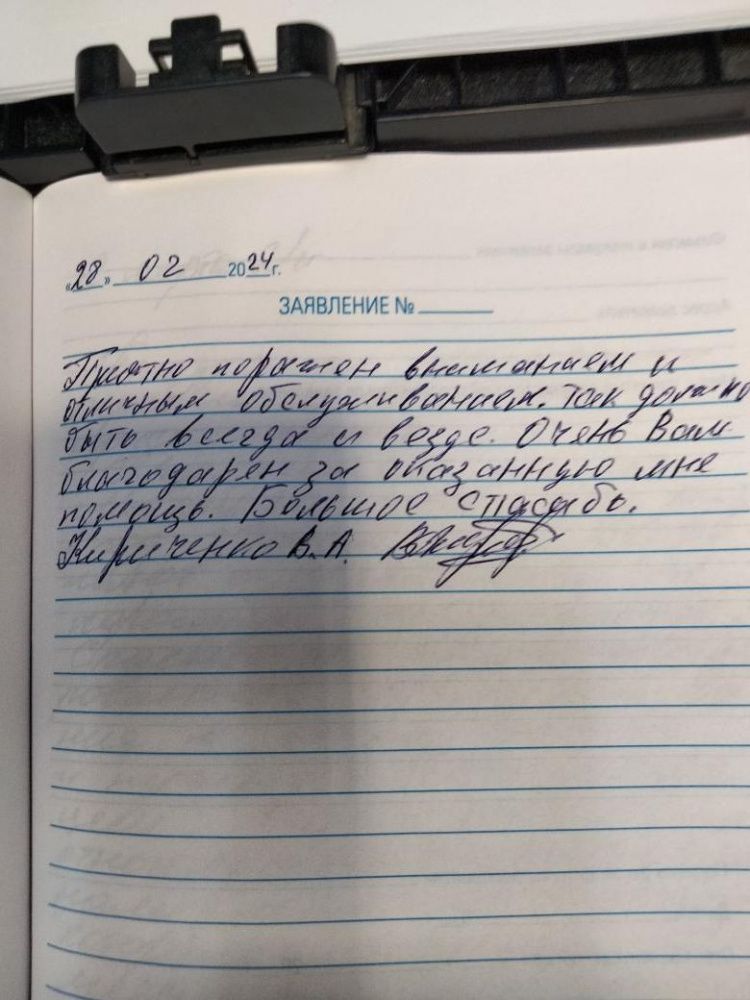 «28» 02 2024г.
ЗАЯВЛЕНИЕ №
Приятно поражен вниманием и
отличным обслуживанием. Так должно
быть всегда и везде. Очень Вам
благодарен за оказанную мне
помощь. Большое спасибо.
Кириченко В.А.